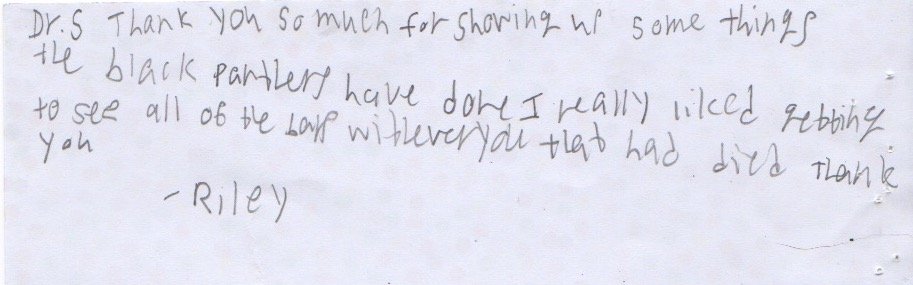 Dr.S Thank you so much for showing us some things
the black panthers have done I really liked getting
to see all of the with everyone that had died Thank
you
-Riley